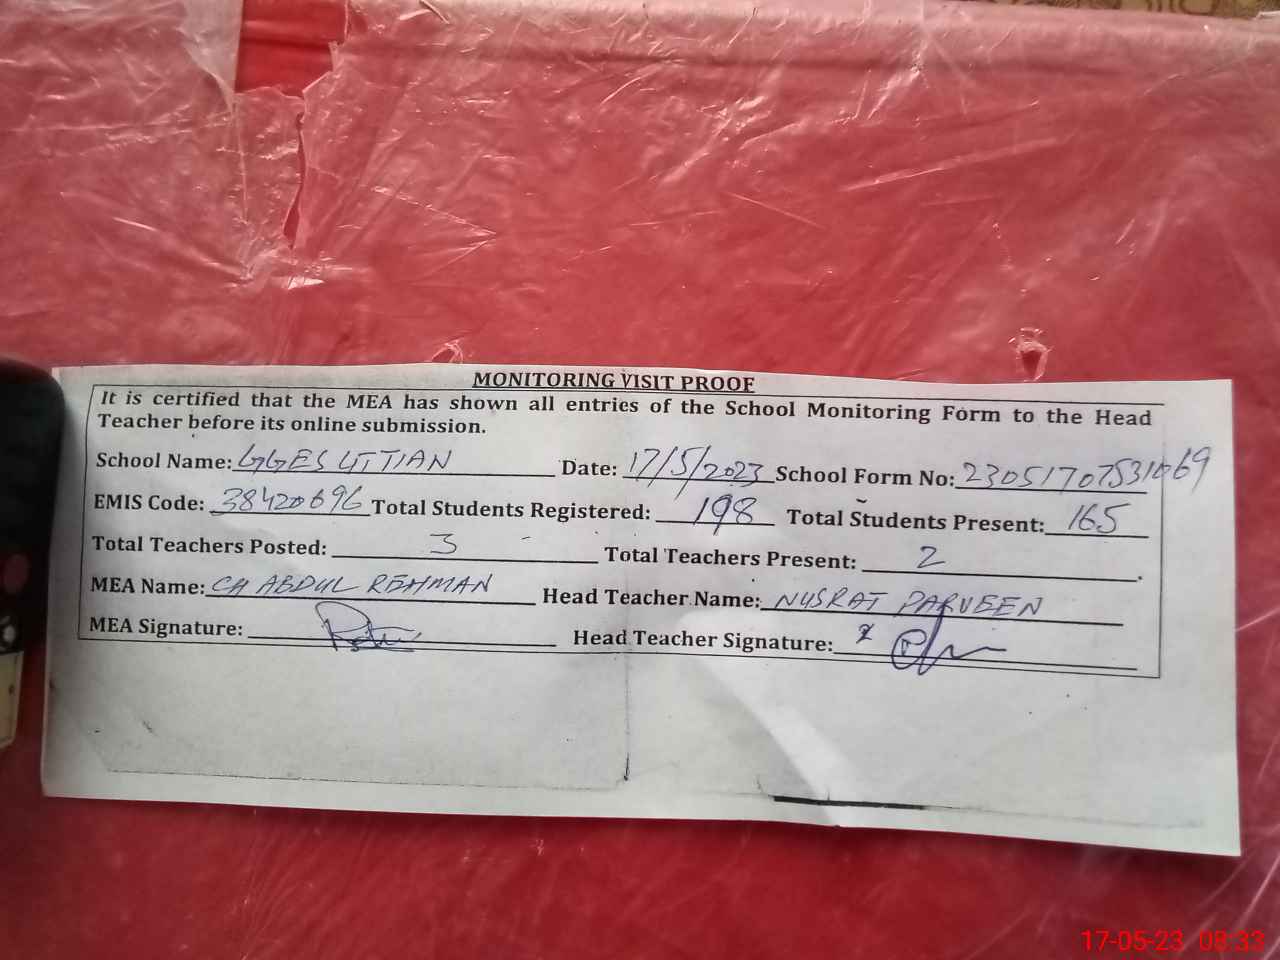 MONITORING VISIT PROOF
It is certified that the MEA has shown all entries of the School Monitoring Form to the Head
Teacher before its online submission.
School Name: GGES UTTIAN Date: 17/5/2023 School Form No: 23051707531069
EMIS Code: 38420696 Total Students Registered: 198 Total Students Present: 165
Total Teachers Posted: 3 Total Teachers Present: 2
MEA Name: CH ABDUL REHMAN Head Teacher Name: NUSRAT PARVEEN
MEA Signature: Head Teacher Signature:
17-05-23 08:33